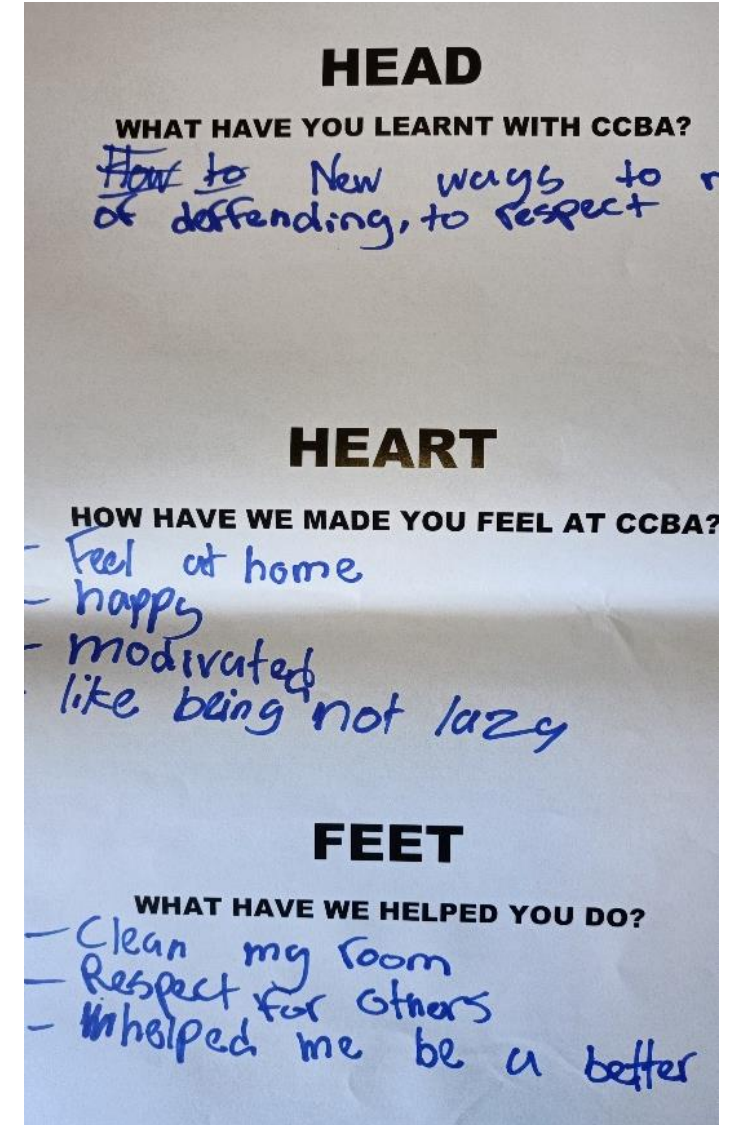 HEAD
WHAT HAVE YOU LEARNT WITH CCBA?
How to New ways to
of deffending, to respect
HEART
HOW HAVE WE MADE YOU FEEL AT CCBA?
- Feel at home
- happy
- modivated
- like being not lazy
FEET
WHAT HAVE WE HELPED YOU DO?
- Clean my room
- Respect for others
- helped me be a better